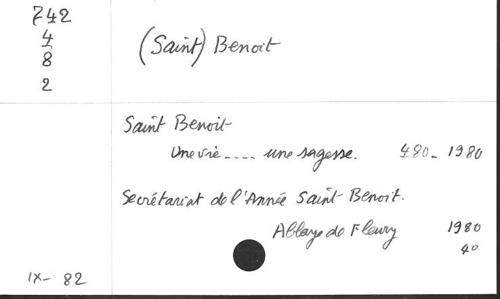 742
4
8
2
(Saint) Benoit
Saint Benoit
Une vie .... une sagesse. 480 - 1980
Secrétariat de l'Année Saint-Benoit.
Abbaye de Fleury 1980
40
IX- 82